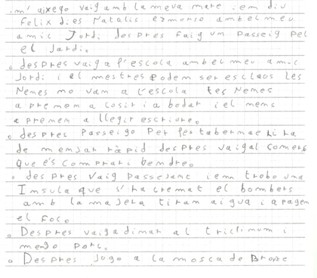 im' aixego vaig amb la meva mare i em diu
Felix dies Natalis esmorso amb el meu
amic Jordi després faig un passeig pel
el Jardí.
després vaig a l'escola amb el meu amic
Jordi i el mestre podem ser esclaos les
Nenes no van a l'escola les Nenes
apremen a cosir i a bodar i el nens
apremen a llegir i escriure.
després Passeigo Per les tabernae hi ha
de menjar ràpid després vaig al comerç
que és comprar i bendre.
després vaig passesanc i em trobo una
Insula que s'ha cremat el bombers
amb la majera tiram aigua i apagen
el foco.
Després vaig a dinar al triclinium i
menjo Porc.
Després jugo a la mosca de Bronze